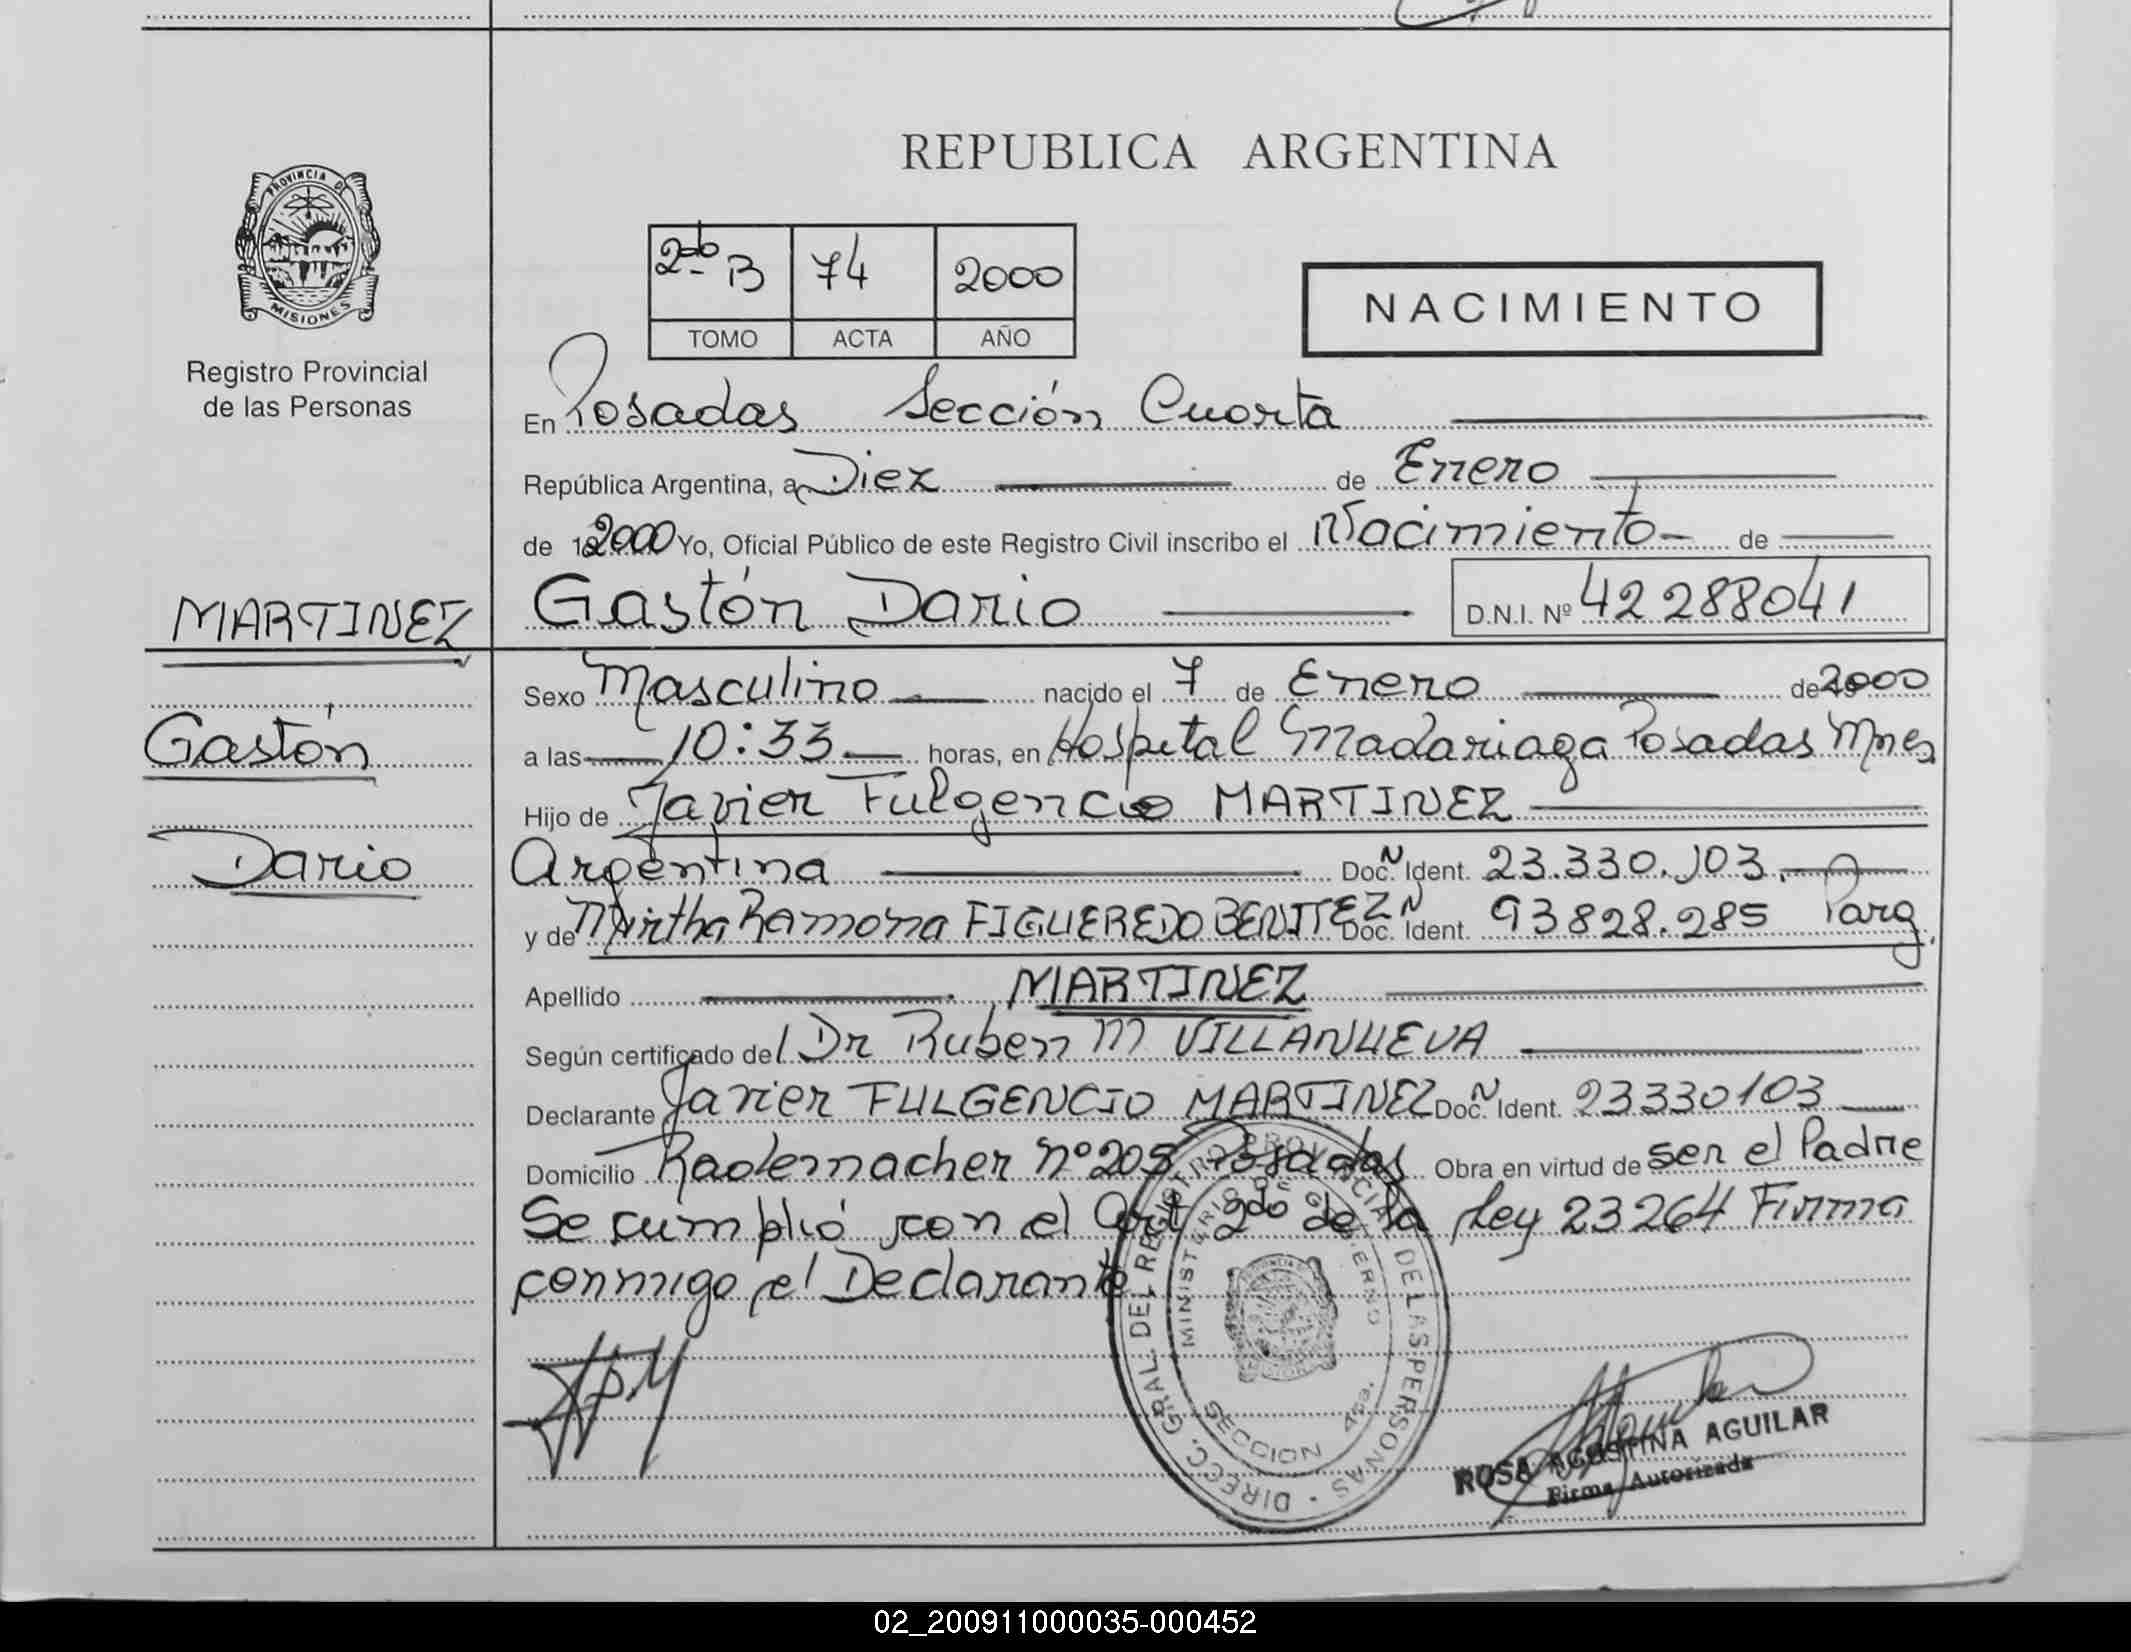 REPUBLICA ARGENTINA
PROVINCIA DE
MISIONES
Registro Provincial
de las Personas
2do B 74 2000
TOMO ACTA AÑO
NACIMIENTO
En Posadas Sección Cuarta
República Argentina, a Diez de Enero
de 2000 Yo, Oficial Público de este Registro Civil inscribo el Nacimiento de
MARTINEZ
Gastón
Dario
Gastón Dario D.N.I. Nº 42 288041
Sexo Masculino nacido el 7 de Enero de 2000
a las 10:33 horas, en Hospital Madariaga Posadas Mnes
Hijo de Javier Fulgencio MARTINEZ
Argentina Doc. N Ident. 23.330.103.
y de Mirtha Ramona FIGUEREDO BENITEZ Doc. N Ident. 93828.285 Parg.
Apellido MARTINEZ
Según certificado del Dr Ruben M VILLANUEVA
Declarante Javier FULGENCIO MARTINEZ Doc. N Ident. 23330103
Domicilio Rademacher Nº 205 Posadas Obra en virtud de ser el Padre
Se cumplió con el Art 2do de la Ley 23264 Firma
conmigo el Declarante
DIRECC. GRAL. DEL REGISTRO PROVINCIAL DE LAS PERSONAS
MINISTERIO DE GOBIERNO
SECCION 4ta.
ROSA AGOSTINA AGUILAR
Firma Autorizada
02_200911000035-000452